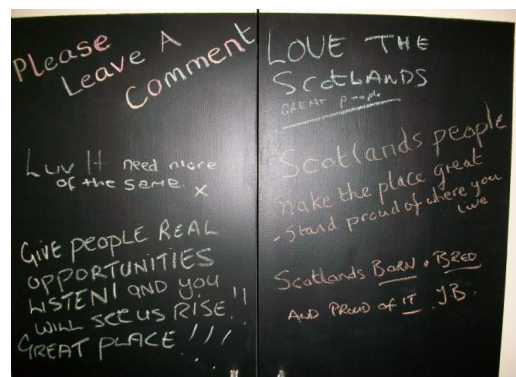 Please
Leave A
Comment
Luv It need more
of the same. x
GIVE PEOPLE REAL
OPPORTUNITIES
LISTEN! AND YOU
WILL SEE US RISE!!
GREAT PLACE!!!
LOVE THE
SCOTLANDS
GREAT people
Scotlands people
make the place great
- Stand proud of where you
live
Scotlands BORN & BRED
AND PROUD of IT. JB.